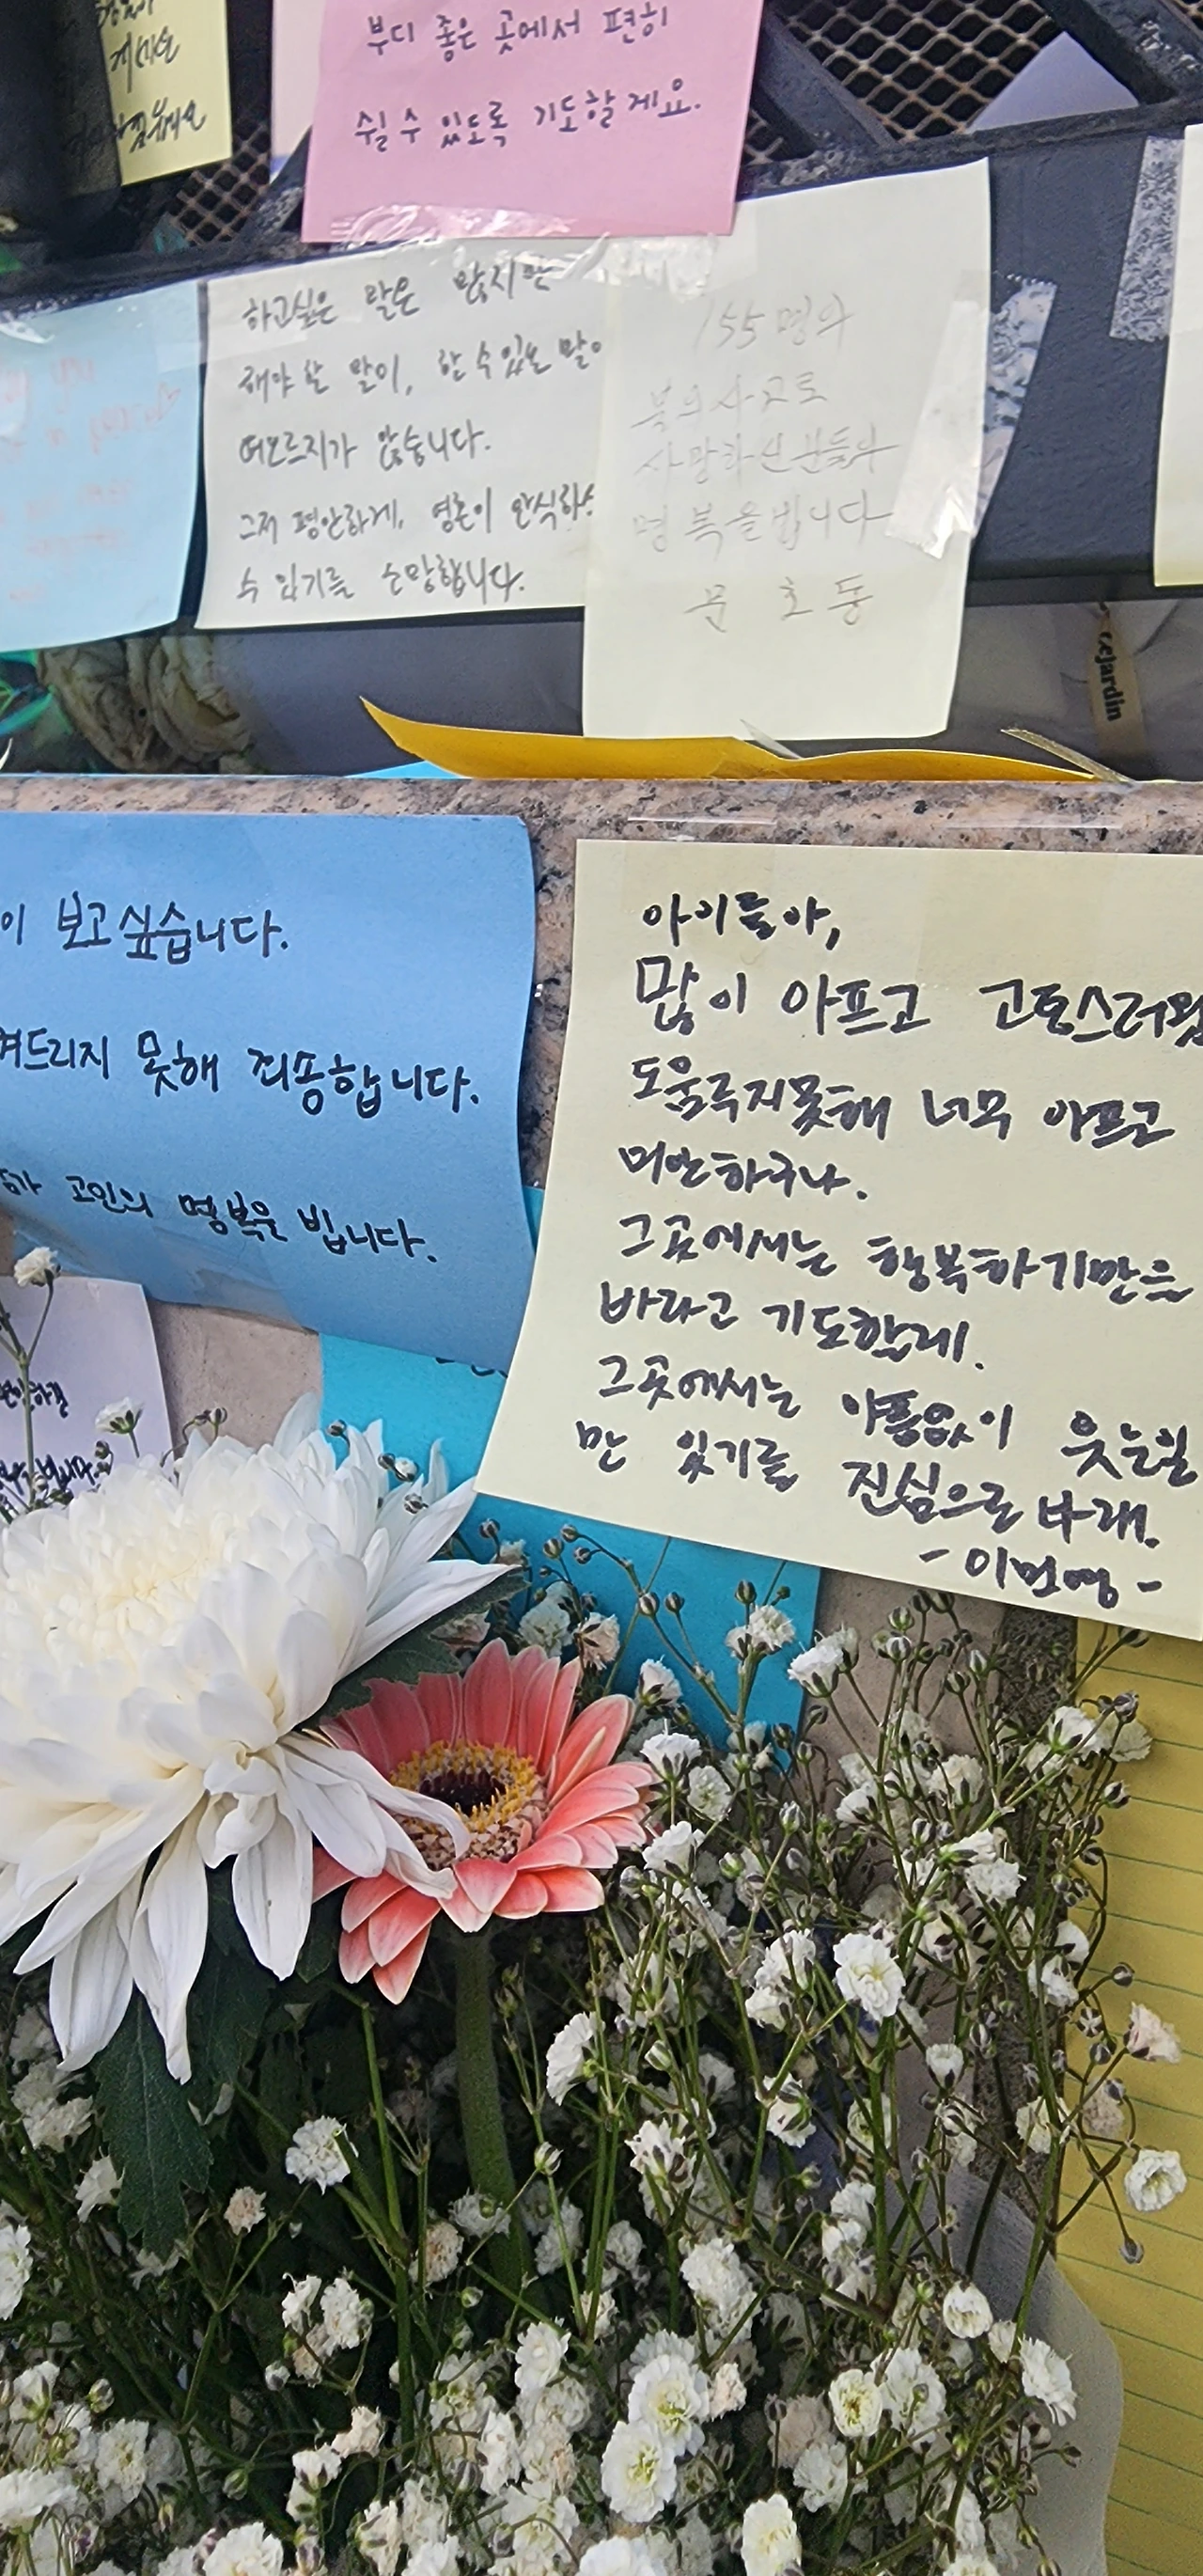 계세요
부디 좋은 곳에서 편히
쉴 수 있도록 기도할게요.
하고싶은 말은 많지만
해야 할 말이, 할 수 있는 말이
떠오르지가 않습니다.
그저 평안하게, 영혼이 안식하실
수 있기를 소망합니다.
155명의
불의사고로
사망하신분들의
명복을빕니다
문 호 동
cejardin
이 보고싶습니다.
켜드리지 못해 죄송합니다.
고인의 명복을 빕니다.
아이들아,
많이 아프고 고통스러웠
도움주지못해 너무 아프고
미안하구나.
그곳에서는 행복하기만을
바라고 기도할게.
그곳에서는 아픔없이 웃는일
만 있기를 진심으로 바래.